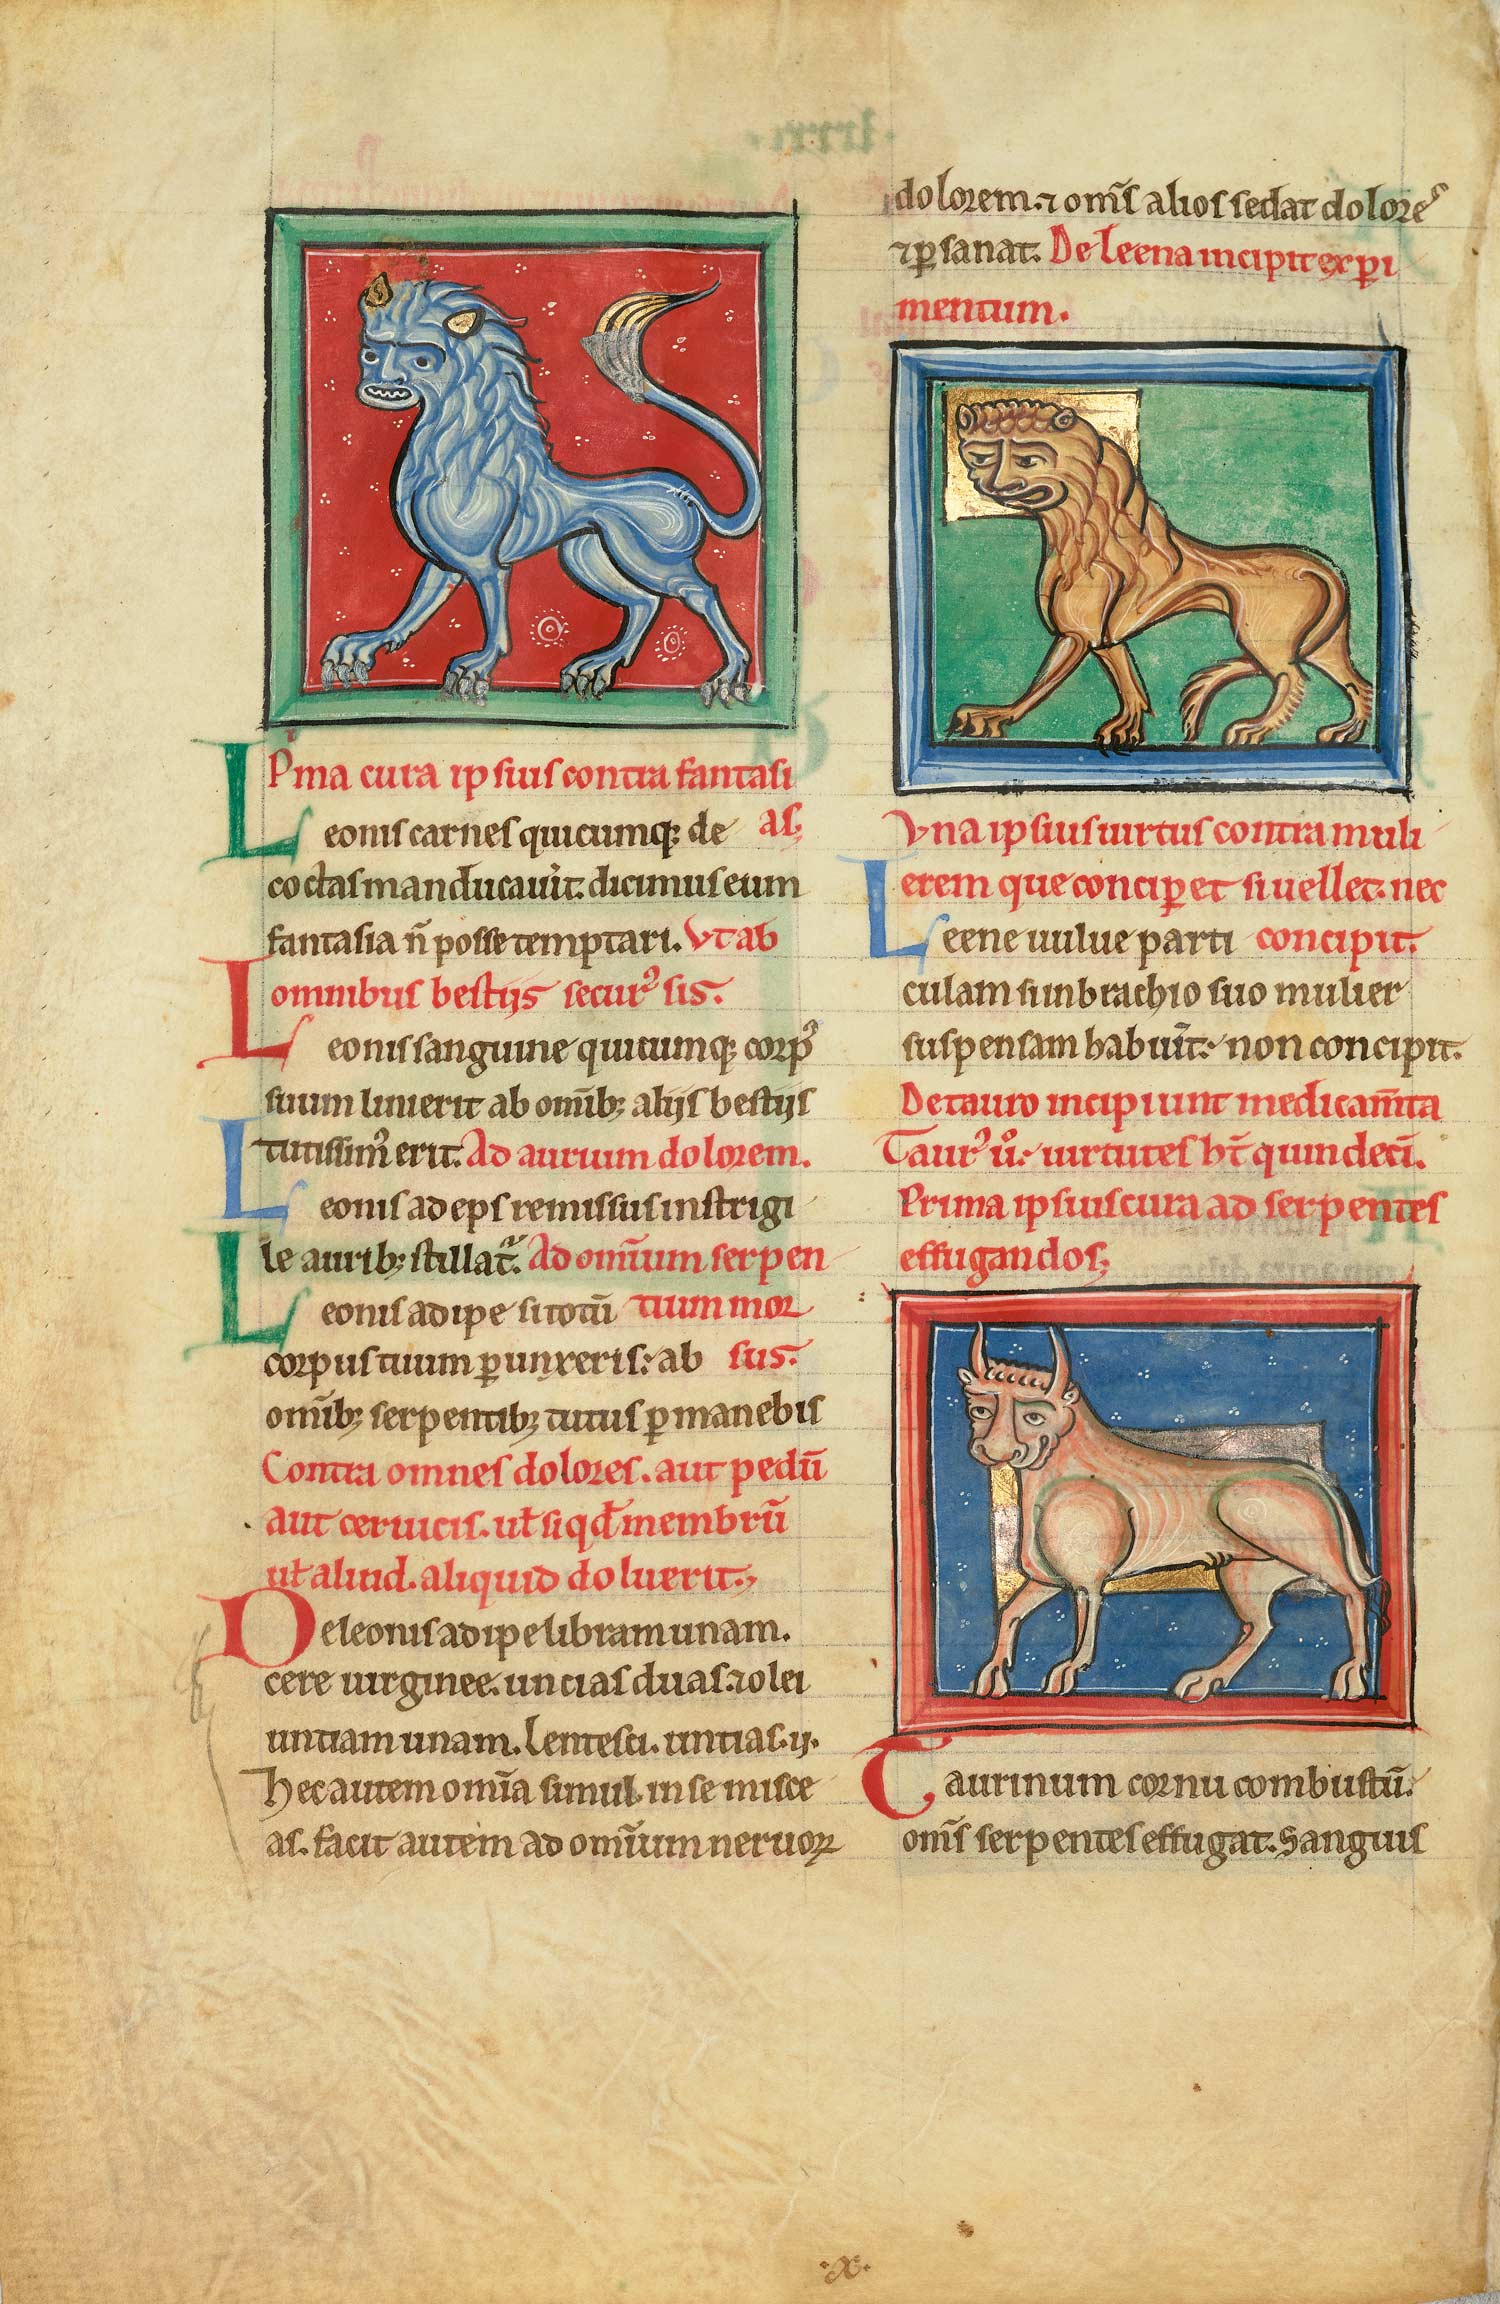 Pma cura ipsius contra fantasi
as;
Leonis carnes quicumq; de
coctas manducauit. dicimus eum
fantasia n̄ posse temptari. Vt ab
omnibus bestijs secur⁹ sis.
Leonis sanguine quicumq; corp⁹
suum linierit ab om̄ib; alijs bestijs
tutissim⁹ erit. Ad aurium dolorem.
Leonis adeps remissus in strigi
le aurib; stillat̄. Ad om̄ium serpen
tium mor
Leonis adipe si totū
sus.
corpus tuum ꝑunxeris: ab
om̄ib; serpentib; tutus ꝑmanebis
Contra omnes dolores. aut pedū
aut ceruicis. ul̄ si qđ membrū
ul̄ aliud. aliquid doluerit.
De leonis adipe libram unam.
cere uirginee. uncias duas. ⁊ olei
untiam unam. Lentesci. untias. ij.
Hec autem om̄ia simul. in se misce
as. facit autem ad om̄ium neruoꝝ
dolorem. ⁊ om̄s alios sedat dolore⁹
⁊ ꝑsanat. De Leena incipit exꝑi
mentum.
Vna ipsius uirtus contra muli
erem que conciꝑet si uellet. nec
concipit.
Leene uulue parti
culam sun brachio suo mulier
suspensam habuīt: non concipit.
De tauro incipiunt medicam̄ta
Taur⁹ ū: uirtutes hn̄t quindeci.
Prima ipsius cura ad serpentes
effugandos;
Taurinum cornu combustū.
om̄s serpentes effugat. Sanguis
.x.